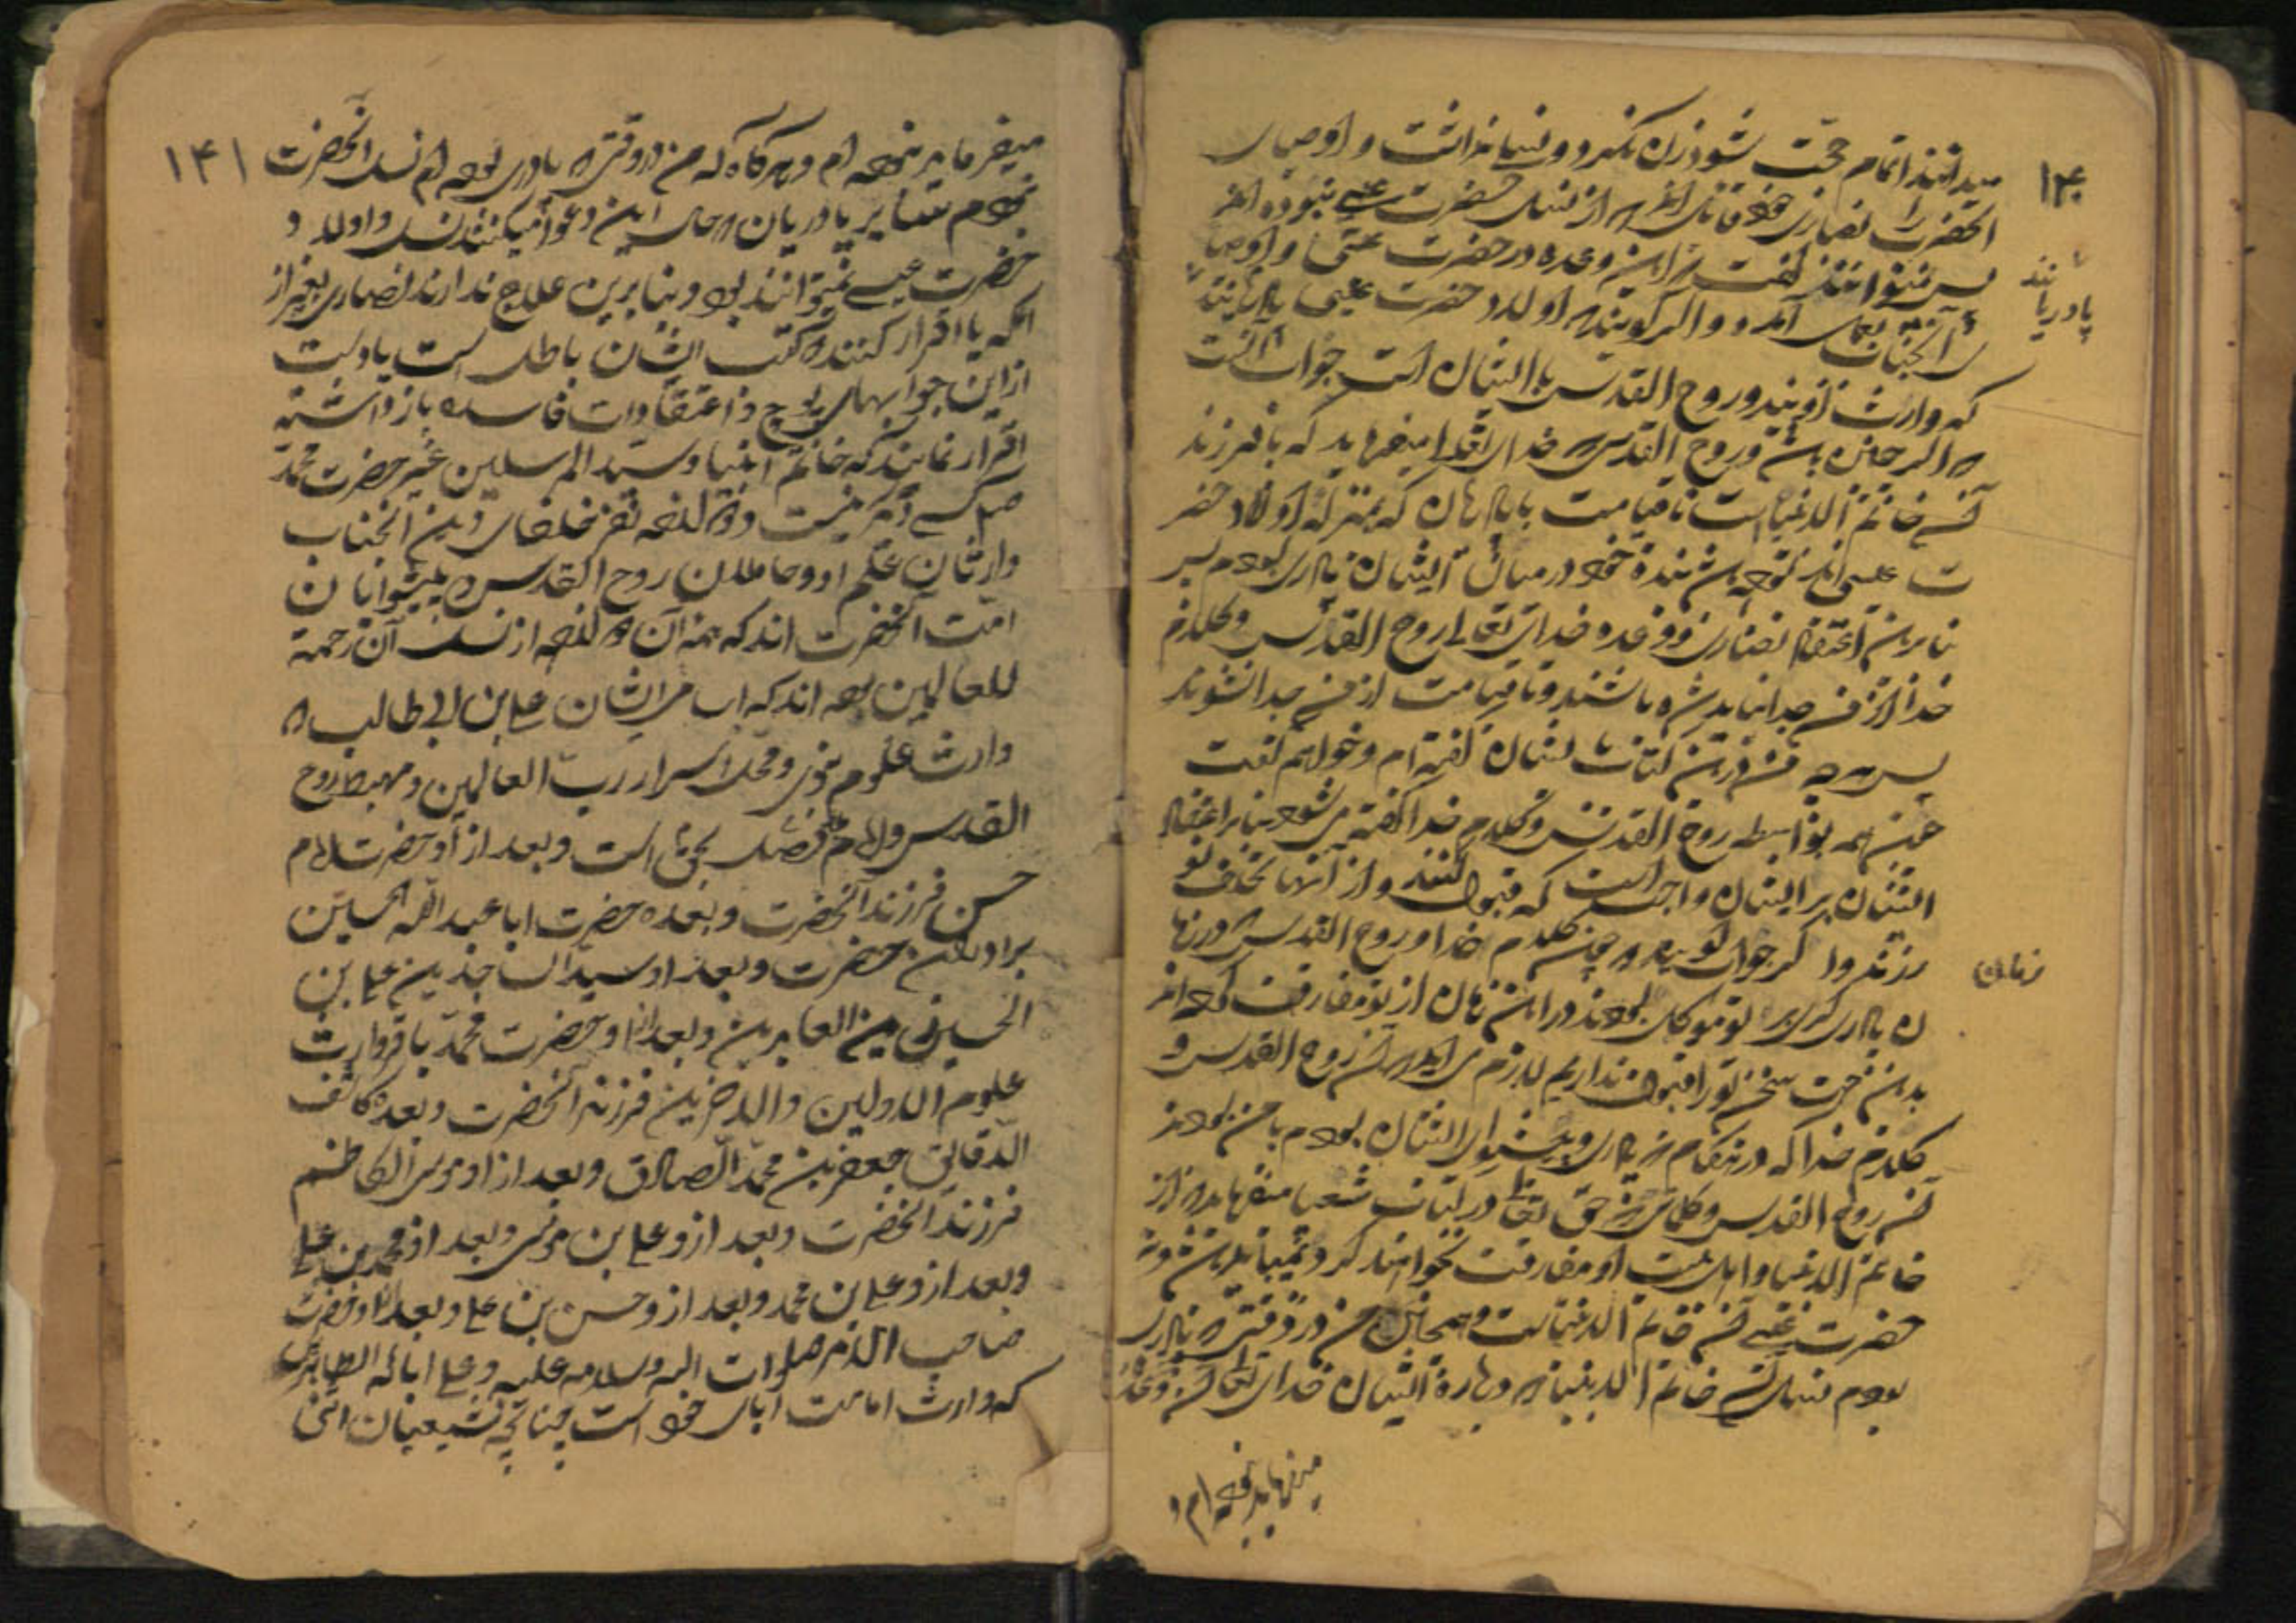 ۱۴۰
میدانند اتمام حجت شود زن نکرد و نسل نداشت و اوصیای
آنحضرت را نصاری خود قائل اند که از نسل حضرت عیسی نبوده اند
پس نمیتوانند گفت که این وعده در حضرت عیسی و اوصیا
ی آنجناب بعمل آمده و اگر گویند که اولاد حضرت عیسی پادریانند
پادریانند
که وارث اویند و روح القدس با ایشان است جواب آنست
که اگر چنین باشد روح القدس که خدای تعالی میفرماید که با فرزند
آن خاتم الانبیا است تا قیامت با پادریان که بمنزله اولاد حضر
ت عیسی اند بوده باشد بنده خود در میان ایشان پادری بودم
بنابرین اعتقاد نصاری و وعده خدای تعالی روح القدس و کلام
خدا از من جدا نباید شده باشند و تا قیامت از من جدا نشوند
پس هر چه من درین کتاب بایشان گفته ام و خواهم گفت
همه بواسطه روح القدس و کلام خدا گفته می شود بنابر اعتقاد
ایشان بر ایشان واجب است که قبول کنند و از آنها تخلف
نورزند و اگر جواب گویند که چون کلام خدا و روح القدس که در زما
زمان
ن پادری گری بر تو موکل بودند در این زمان از تو مفارقت کرده اند
بدین جهت سخن تو را قبول نداریم لازم می آید که آن روح القدس و
کلام خدا که در هنگام که پادری و پیشوای ایشان بودم با من بودند
آن روح القدس و کلامی که حق تعالی در کتاب شعیا میفرماید که از
خاتم الانبیا و اهل بیت او مفارقت نخواهند کرد نمیباید باشند و نه
حضرت عیسی آن خاتم الانبیاست و همچنین من در وقتی که پادری
بودم نسل آن خاتم الانبیا که درباره ایشان خدای تعالی آن وعده
میفرماید نبوده ام و
۱۴۱
میفرماید نبوده ام و هرگاه که من در وقتی که پادری بوده ام نسل آنحضرت
نبودم سایر پادریان که حال این دعوا میکنند نسل و اولاد
حضرت عیسی نمیتوانند بود و بنابرین علاج ندارند نصاری بغیر از
آنکه یا اقرار کنند که کتب ایشان باطل است یا دست
از این جوابهای پوچ و اعتقادات فاسده باز داشته
اقرار نمایند که خاتم انبیا و سید المرسلین غیر حضرت محمد
ص کسی دیگر نیست و دوازده نفر خلفای دین آنجناب
وارثان علم او و حاملان روح القدس و پیشوایان
امت آنحضرت اند که همه آن دوازده از نسل آن رحمة
للعالمین بوده اند که اب مر ایشان علی بن ابی طالب که
وارث علوم نبوی و محل اسرار رب العالمین و مهبط روح
القدس و امام مفضل بحق است و بعد از او حضرت امام
حسن فرزند آنحضرت و بعده حضرت ابا عبد الله الحسین
برادر آن حضرت و بعد او سید الساجدین علی بن
الحسین زین العابدین و بعد از او حضرت محمد باقر وارث
علوم الاولین و الاخرین فرزند آنحضرت و بعده کاشف
الدقایق جعفر بن محمد الصادق و بعد از او موسی الکاظم
فرزند آنحضرت و بعد از و علی بن موسی و بعد از و محمد بن علی
و بعد از و علی بن محمد و بعد از و حسن بن علی و بعد از او حضرت
صاحب الامر صلوات الله و سلامه علیه و علی ابائه الطاهرین
که وارث امامت ابای خود است چنانچه شیعیان اثنی